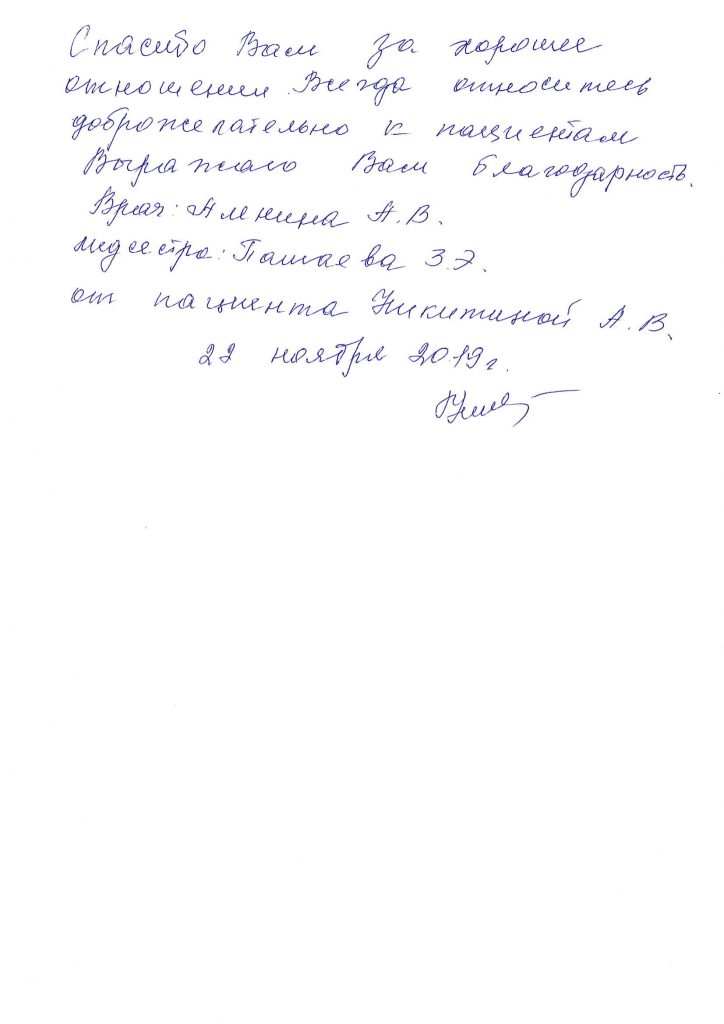 Спасибо Вам за хорошее
отношении. Всегда относитесь
доброжелательно к пациентам
Выражаю Вам благодарность.
Врач: Аленина А.В.
медсестра: Пашаева З.Э.
от пациента Никитиной А.В.
22 ноября 2019 г.